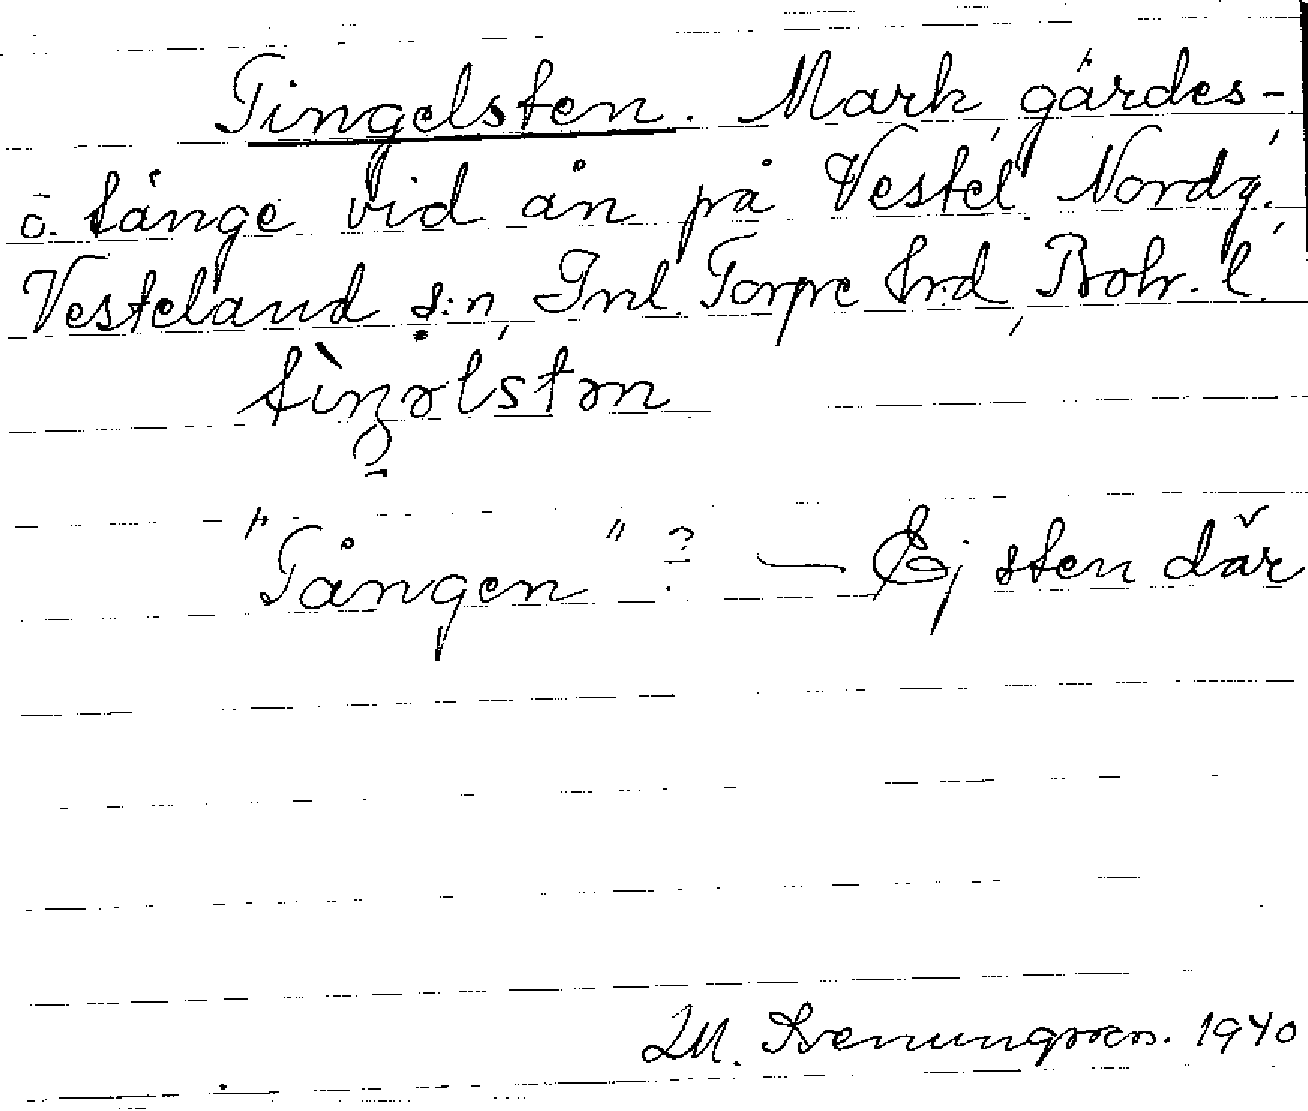 Tingelsten. Mark, gärdes-
o. tånge vid ån på Vestel. Nordg.,
Vesteland s:n, Inl. Torpe hrd, Boh. l.
"Tången" ? — Ej sten där
M. 1940